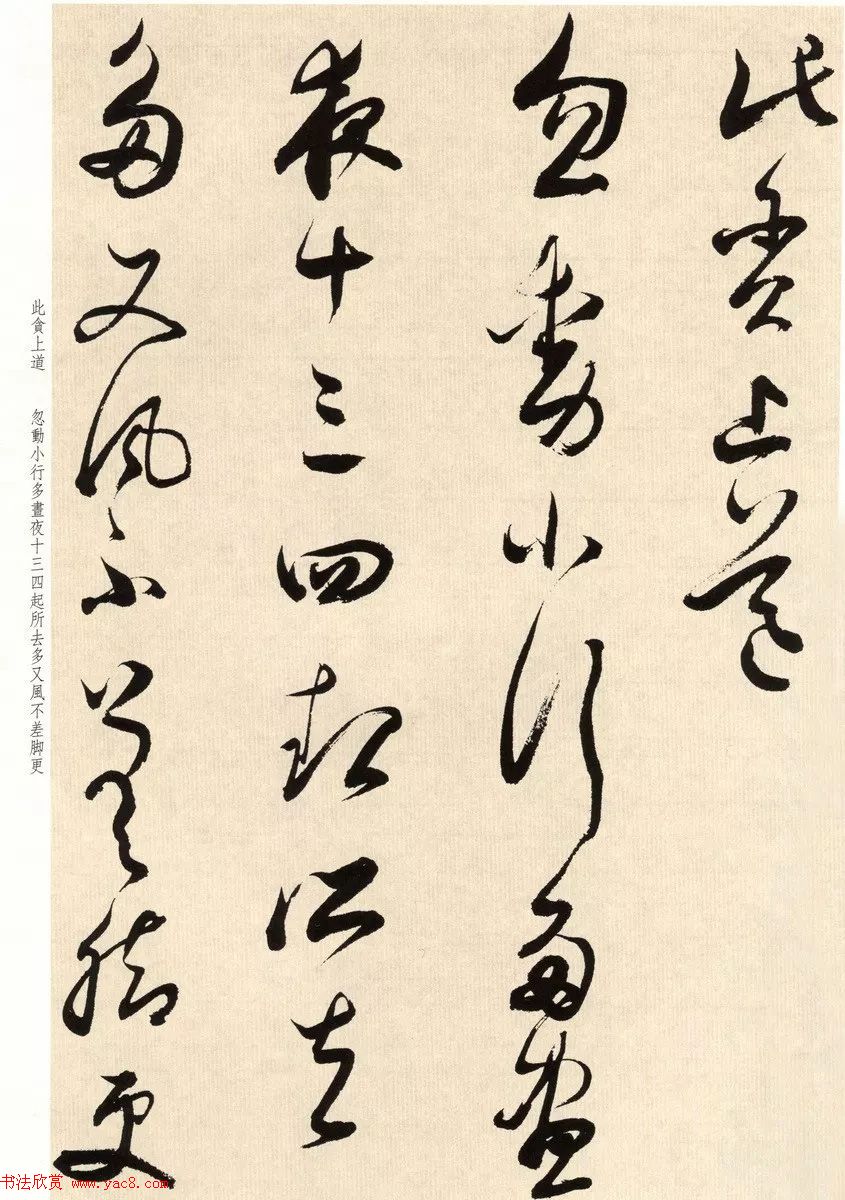 此貪上道
忽動小行多晝
夜十三四起所去
多又風不差脚更
此貪上道　忽動小行多晝夜十三四起所去多又風不差脚更
书法欣赏 www.yac8.com